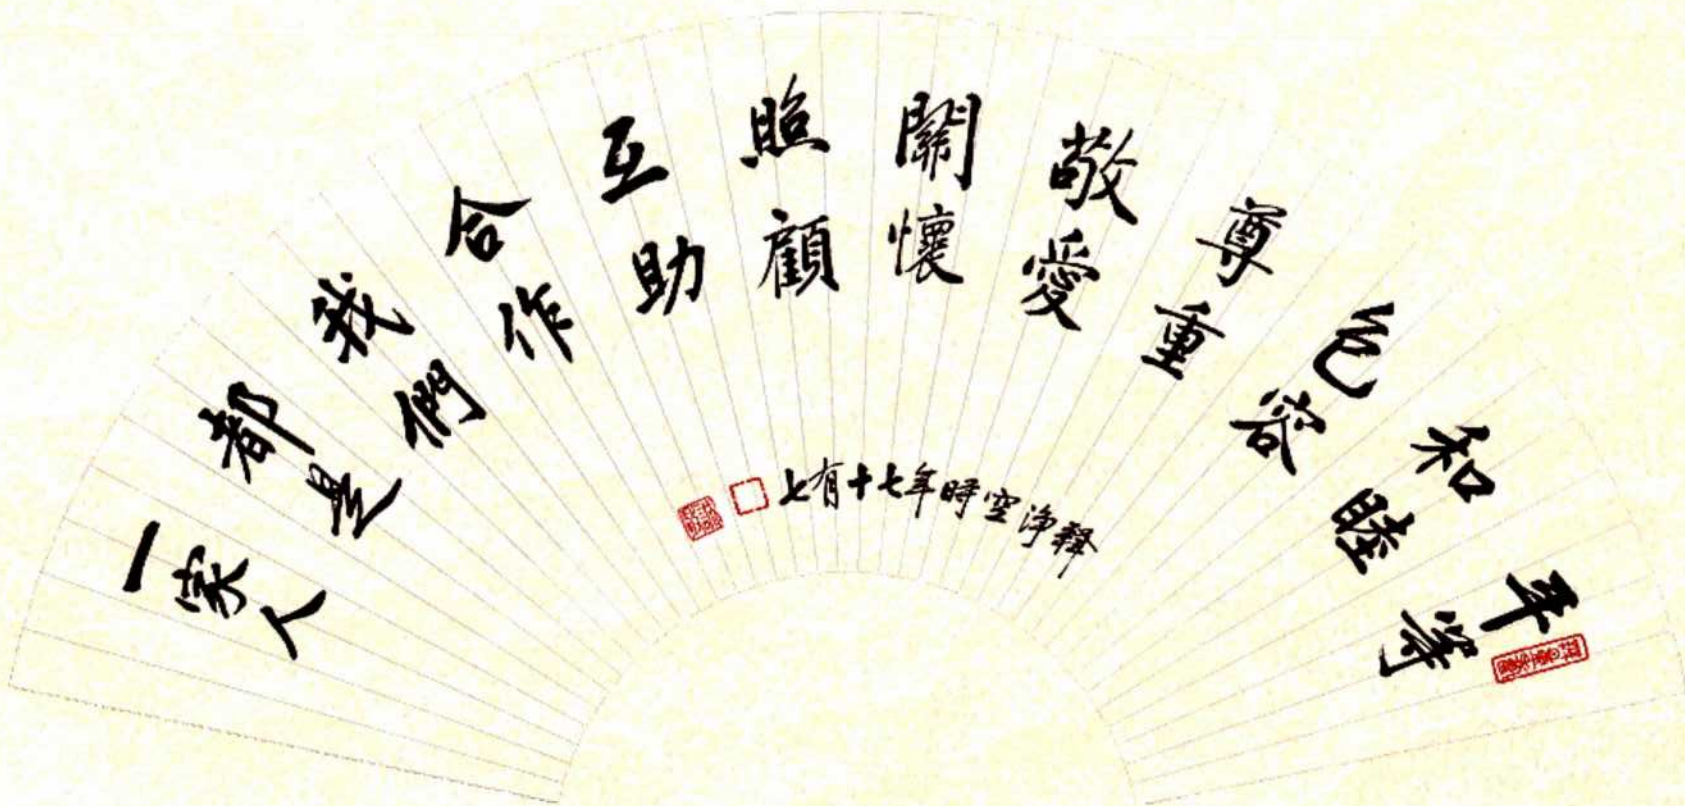 平等
和睦
包容
尊重
敬愛
關懷
照顧
互助
合作
我們
都是
一家人
釋淨空時年七十有七